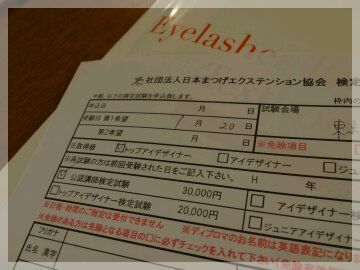 Eyelashe
社団法人日本まつげエクステンション協会 検定
※般、以下の検定試験を申込致します。
枠内の
申込日 月 日 試験会場
受験日 第1希望 1 月 20 日 東
第2希望 月 日 ※免除項目
※取得級 トップアイデザイナー アイデザイナー ジュニア
※再試験の方は前回受験された日をご記入下さい。 H 年
公認講師検定試験 30,000円 アイデザイナー検
トップアイデザイナー検定試験 20,000円 ジュニアアイデザ
※日程・時間のご指定は受付できません ※ディプロマのお名前は英語表記になり
※免除のある方は免除となる項目の□に必ずチェックを入れて下さい(免除有
フリガナ
氏名 漢字